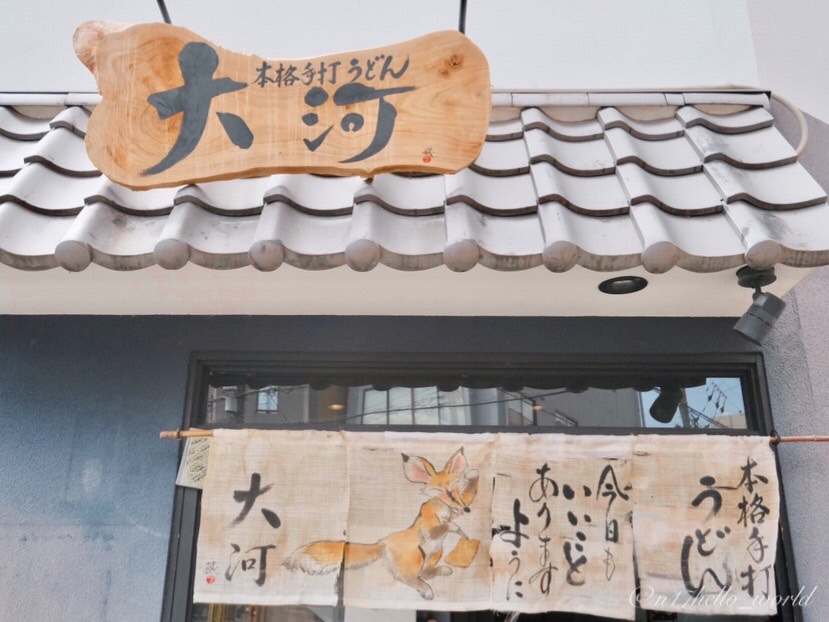 本格手打うどん
大河
本格手打
うどん
今日も
いいこと
あります
ように
大河
@n17hello_world